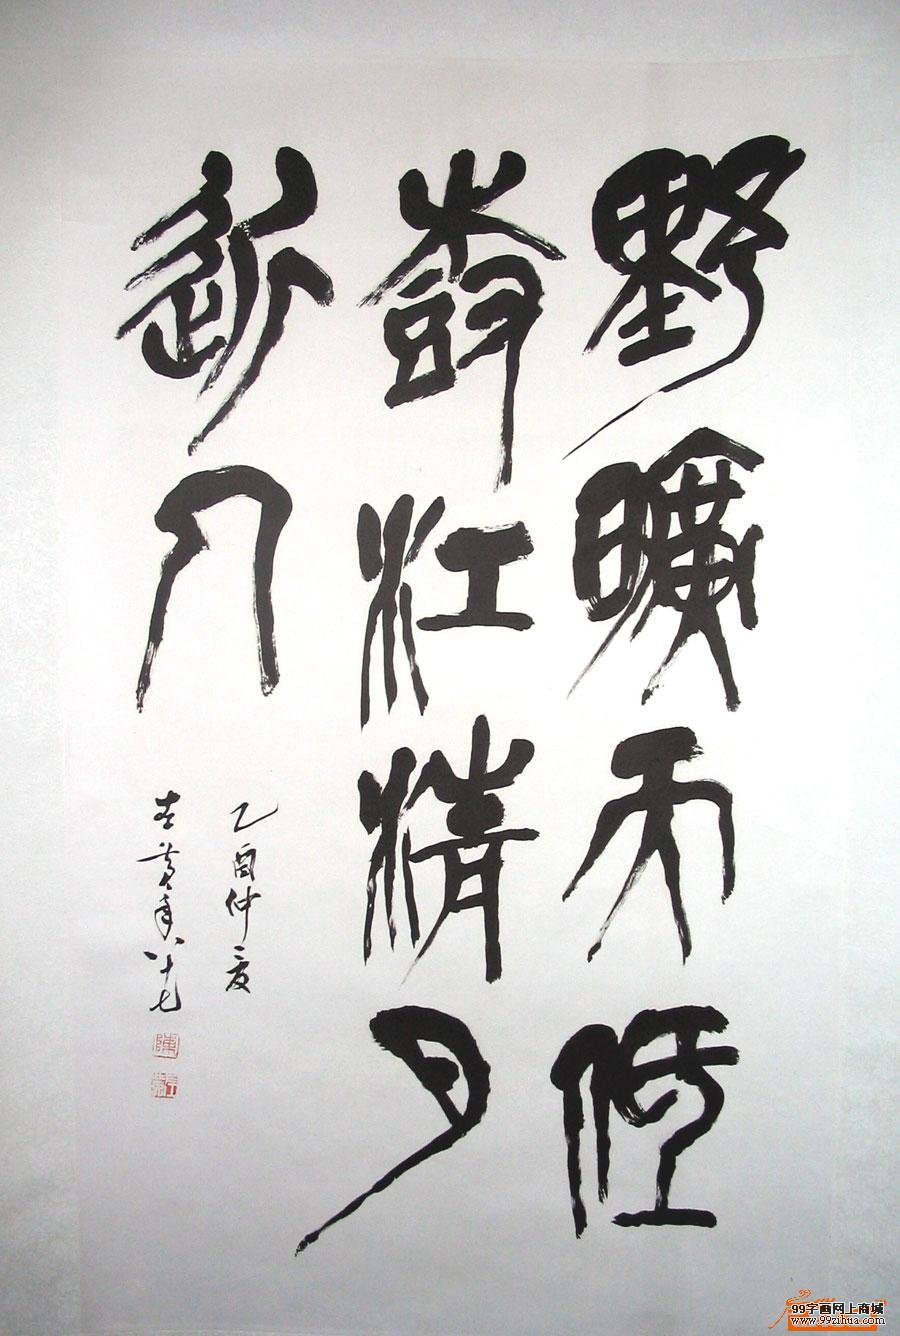 野曠天低
樹江清月
近人
乙酉仲夏
左黃年八十七
陳
99字画网上商城
www.99zihua.com